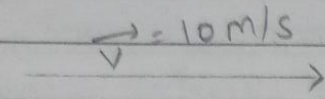 v⃗ = 10 m/s